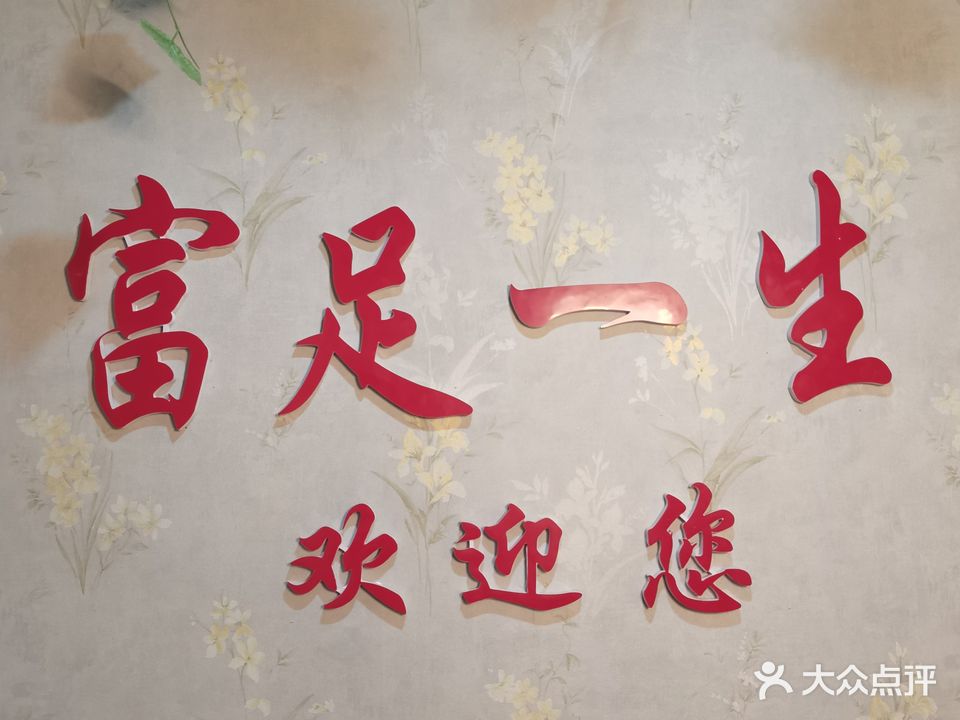 富足一生
欢迎您
大众点评